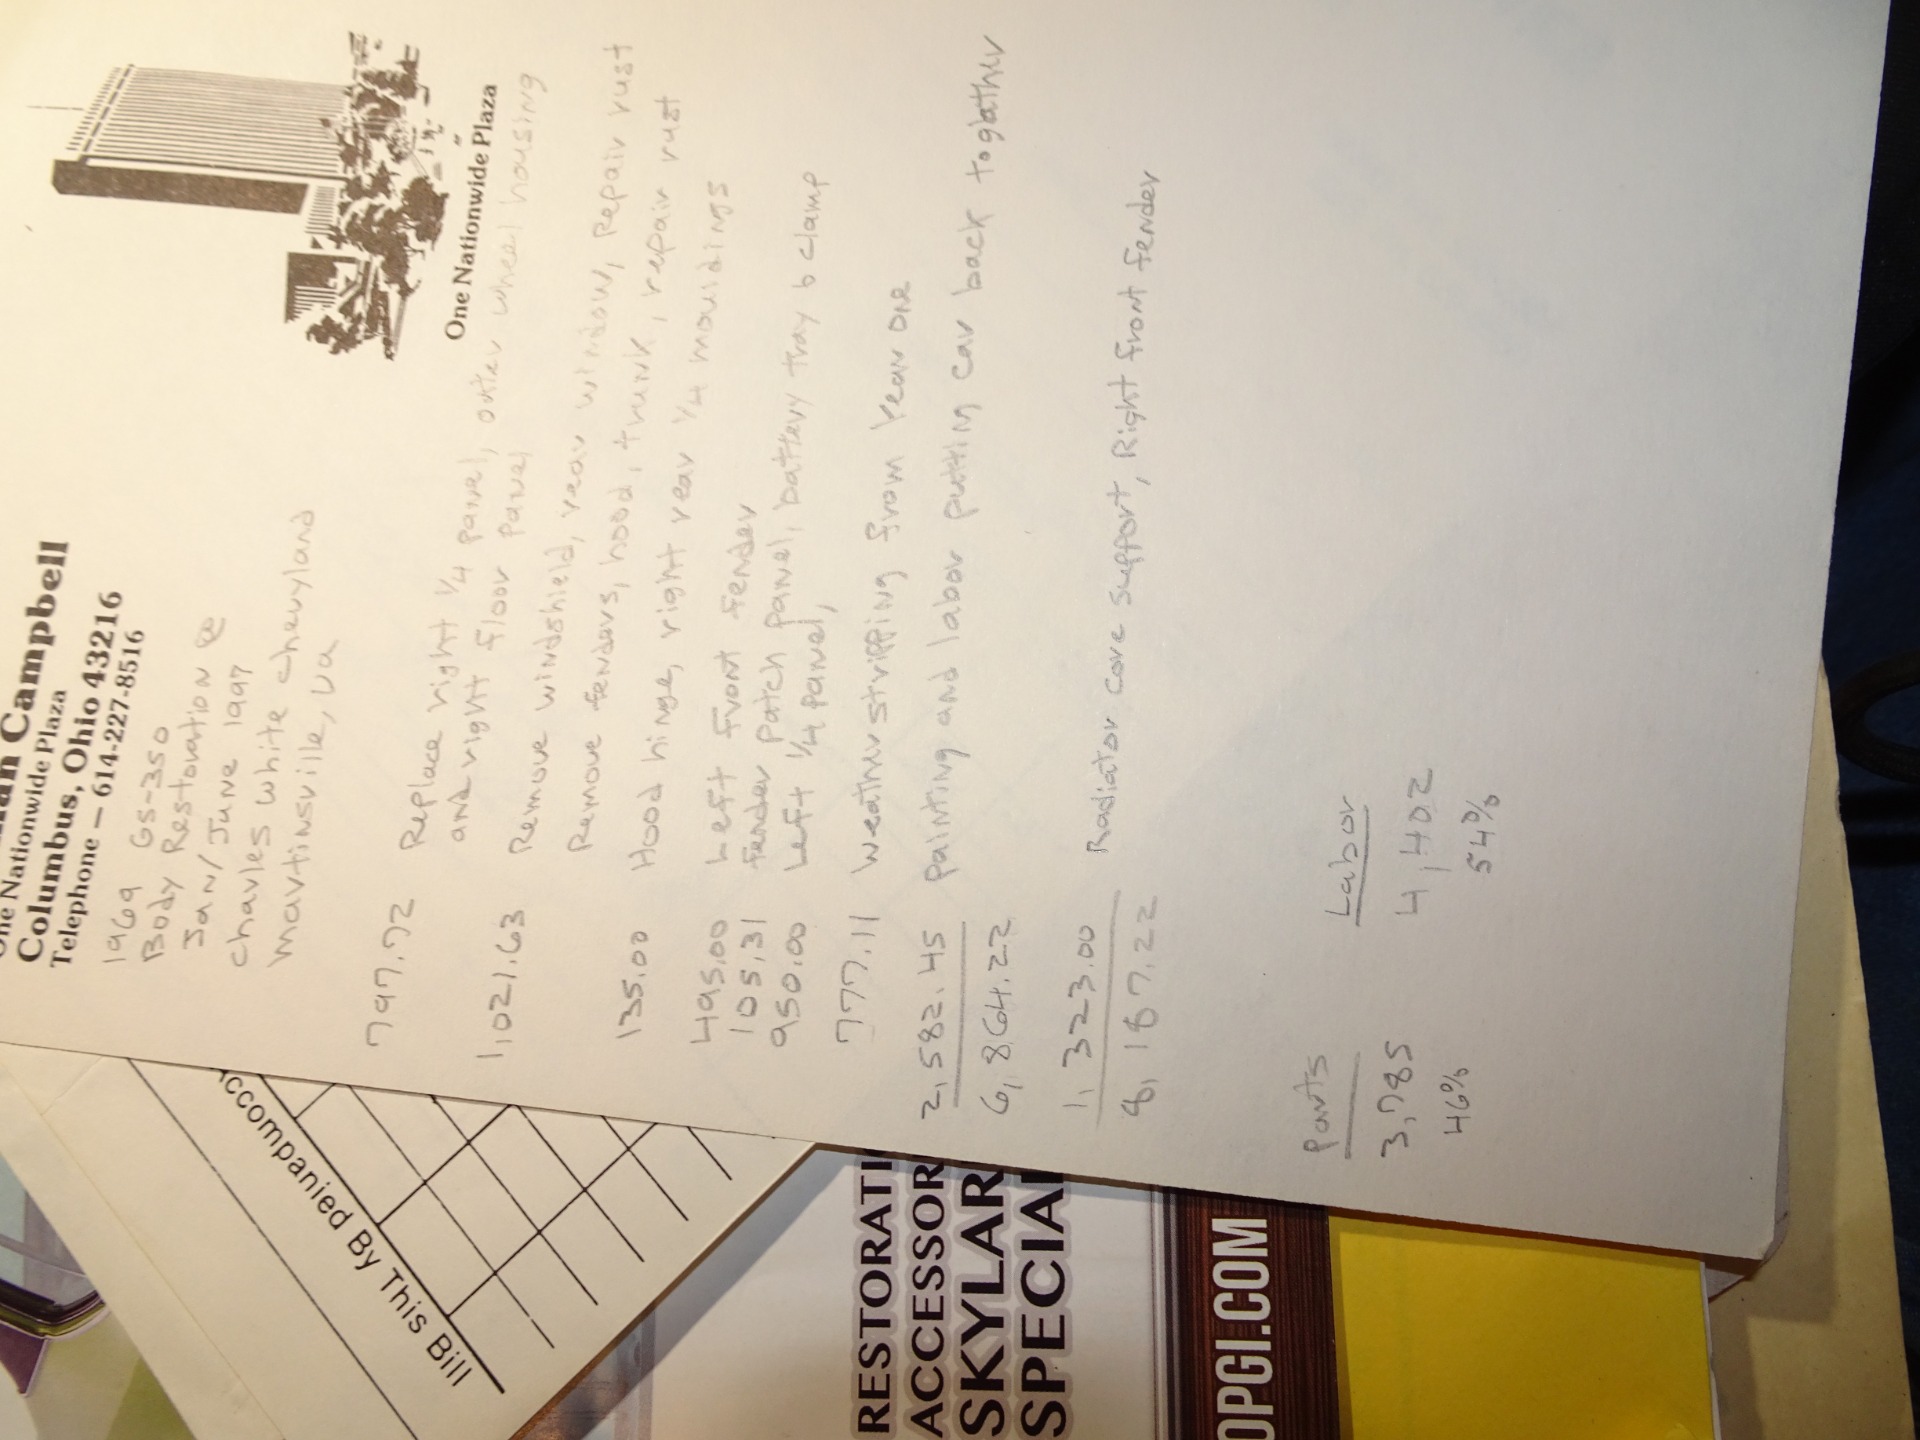 Campbell
One Nationwide Plaza
Columbus, Ohio 43216
Telephone — 614-227-8516
One Nationwide Plaza
1969 GS-350
Body Restoration @
Jan/June 1997
Charles White Chevyland
Martinsville, VA
797.72 Replace right 1/4 panel, outer wheel housing
and right floor panel
1,021.63 Remove windshield, rear window, Repair rust
Remove fenders, hood, trunk, repair rust
135.00 Hood hinge, right rear 1/4 mouldings
495.00 Left front fender
105.31 fender patch panel, battery tray & clamp
950.00 Left 1/4 panel,
777.11 Weather stripping from Year One
2,582.45 Painting and labor putting car back togather
6,864.22
1,323.00 Radiator core support, Right front fender
8,187.22
Parts Labor
3,785 4,402
46% 54%
Accompanied By This Bill
RESTORATI
ACCESSOR
SKYLAR
SPECIAL
OPGI.COM